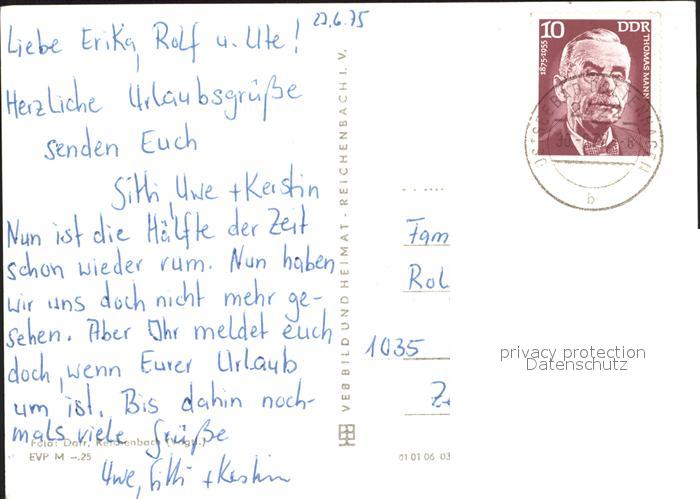 23.6.75
Liebe Erika, Rolf u. Ute!
Herzliche Urlaubsgrüße
senden Euch
Sitti, Uwe + Kerstin
Nun ist die Hälfte der Zeit
schon wieder rum. Nun haben
wir uns doch nicht mehr ge-
sehen. Aber Ihr meldet euch
doch, wenn Eurer Urlaub
um ist. Bis dahin noch-
mals viele Grüße
Uwe, Sitti + Kerstin
Foto: Darr, Reichenbach (Vogtl.)
EVP M –.25
VEB BILD UND HEIMAT · REICHENBACH I. V.
10 DDR
1875-1955
THOMAS MANN
OSTSEEBAD
b
Fam
Rol
1035
01 01 06 03
privacy protection
Datenschutz